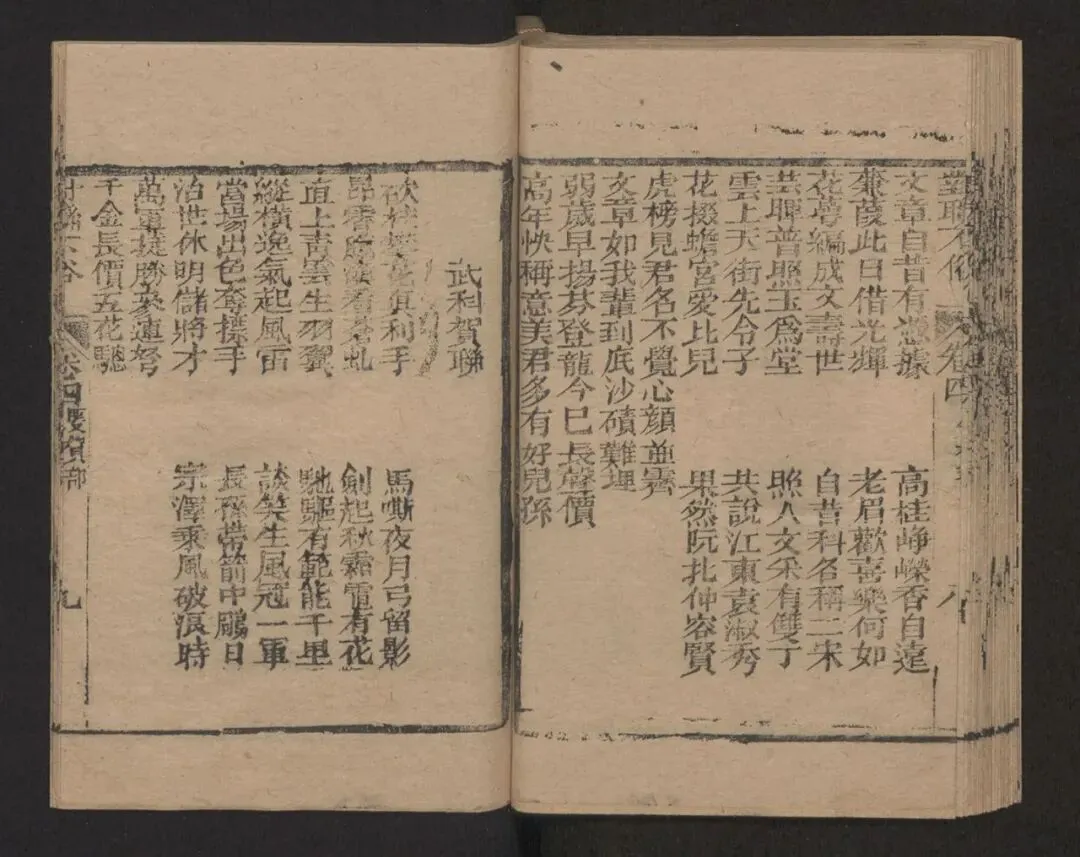 對聯不俗 卷四 八
文章自昔有憑據 高桂崢嶸香自遠
蒹葭此日借光輝 老眉歡喜樂何如
花萼編成文壽世 自昔科名稱二宋
芸暉普照玉為堂 照人文采有雙丁
雲上天街先令子 共說江東袁淑秀
花掇蟾宮愛比兒 果然阮扎仲容賢
虎榜見君名不覺心顏並霽
文章如我輩到底沙磧難埋
弱歲早揚芬登龍今已長聲價
高年快稱意美君多有好兒孫
武科賀聯
手 馬嘶夜月弓留影
看 虬 劍起秋霜電有花
直上青雲生羽翼 馳驅有範能千里
縱橫逸氣起風雷 談笑生風冠一軍
當場出色奪摽手 長孫帶箭中鵰日
治世休明儲將才 宗澤乘風破浪時
萬軍 勝 連弩
千金長價五花驄
卷四慶賀部 九